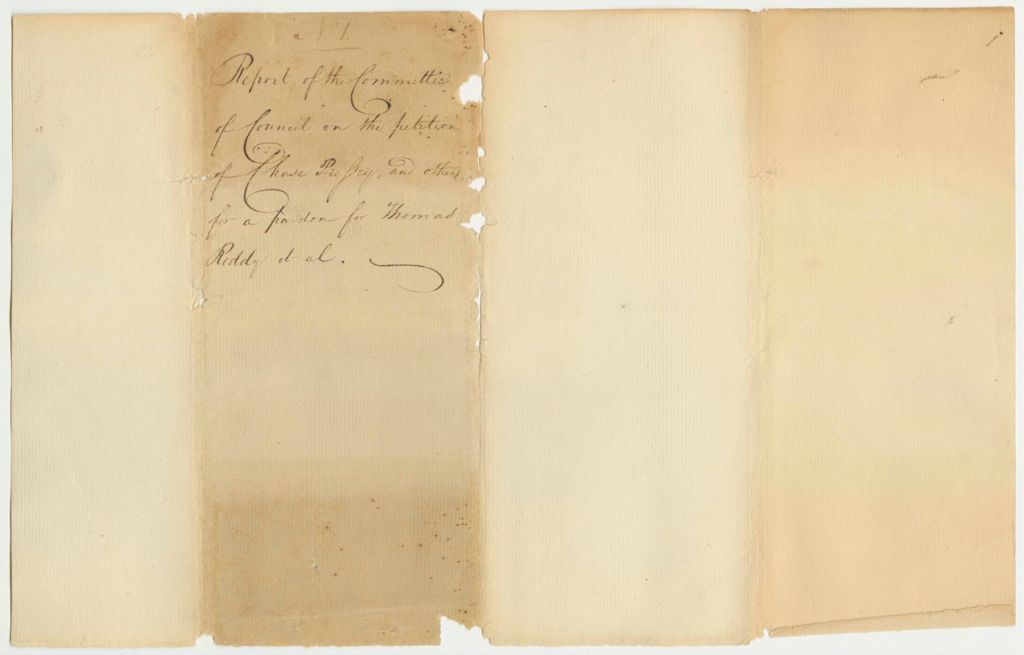 No 1.
Report of the Committee
of Council on the petition
of Chase Pressey, and others
for a pardon for Thomas
Reddy et al.